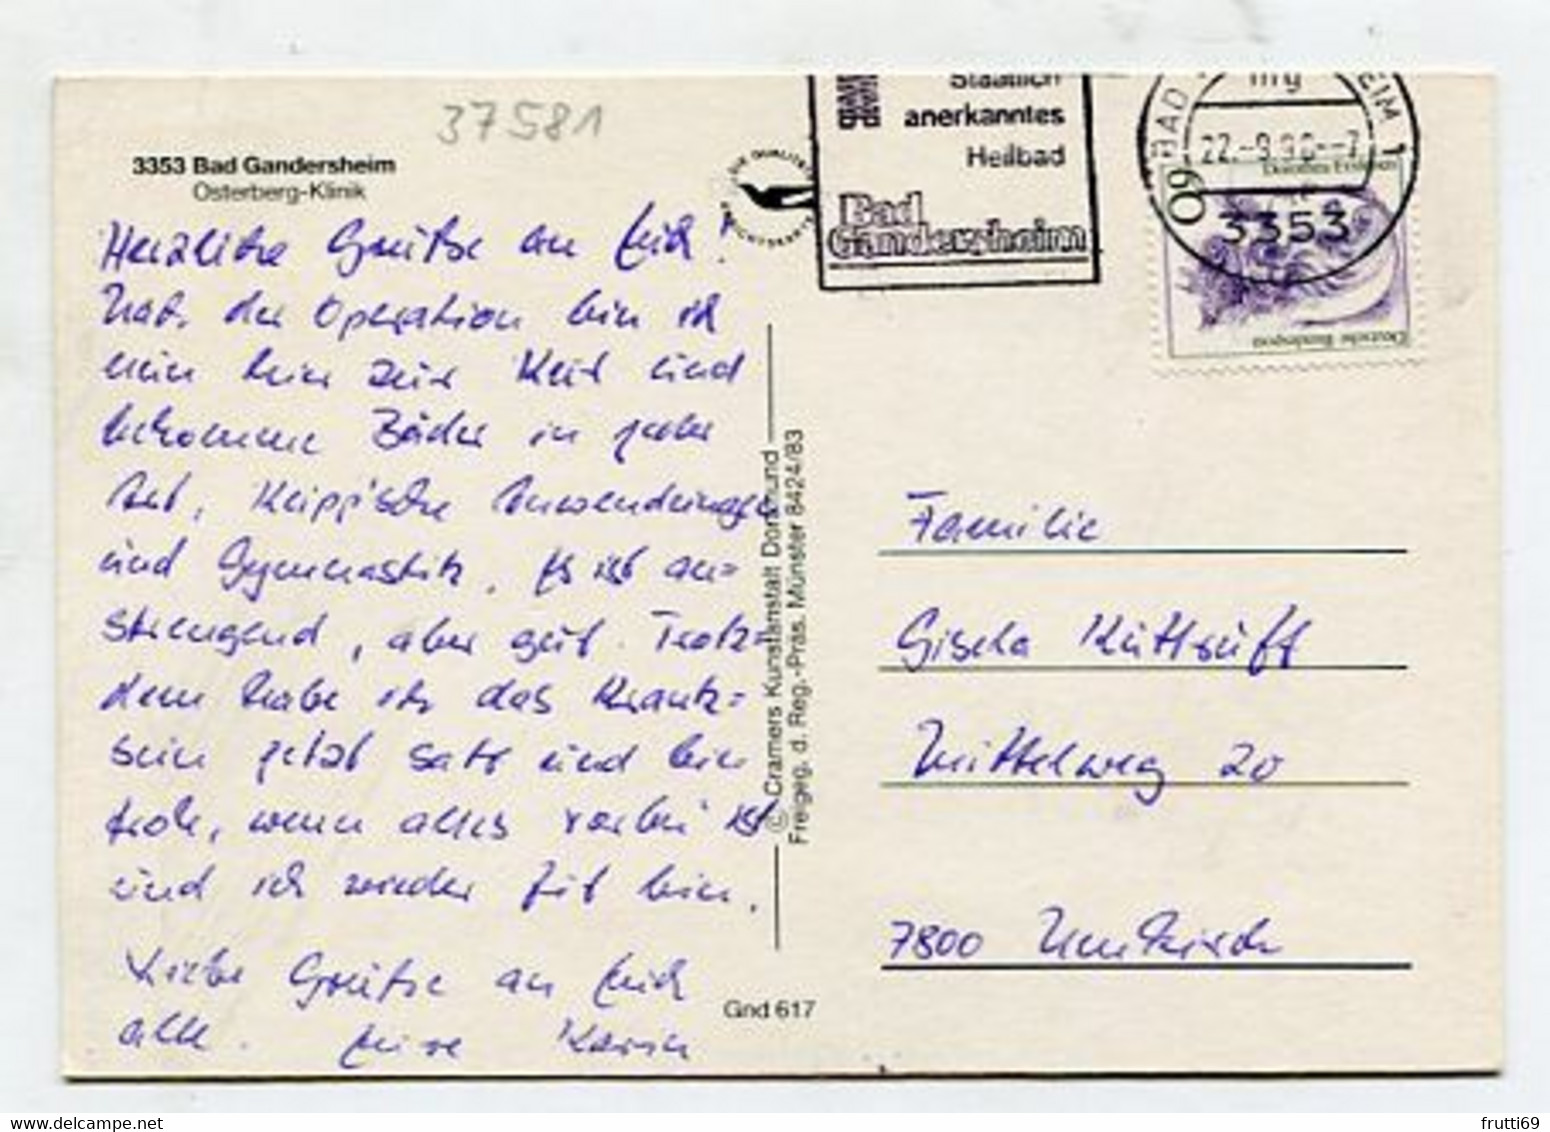 37581
3353 Bad Gandersheim
Osterberg-Klinik
Herzliche Grüße an Euch!
Nach der Operation bin ich
nun hier zur Kur und
bekomme Bäder in jeder
Art, Kneipp'sche Anwendungen
und Gymnastik. Es ist an=
strengend, aber gut. Trotz=
dem habe ich das Krank=
sein jetzt satt und bin
froh, wenn alles vorbei ist
und ich wieder fit bin.
Liebe Grüße an Euch
alle. Eure Karin
© Cramers Kunstanstalt Dortmund
Freigeg. d. Reg.-Präs. Münster 8424/83
Gnd 617
Staatlich
anerkanntes
Heilbad
Bad
Gandersheim
BAD EIM 1
22.-9.90.--7
3353
60
Deutsche Bundespost
Familie
Gisela Küttruff
Mittelweg 20
7800 Umkirch
frutti69